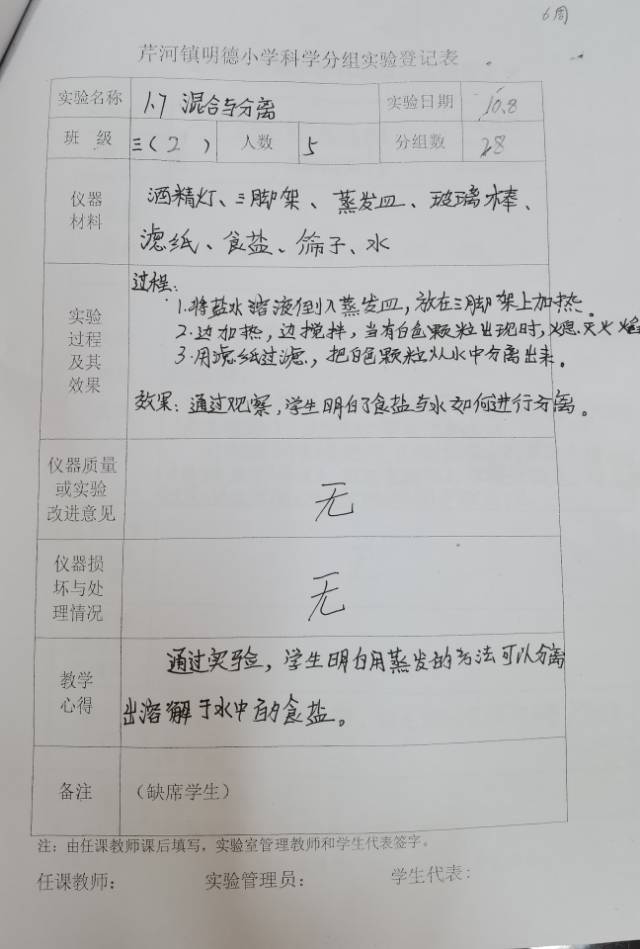 6周
芹河镇明德小学科学分组实验登记表
实验名称 1.7 混合与分离 实验日期 10.8
班 级 三(2) 人数 5 分组数 28
仪器
材料
酒精灯、三脚架、蒸发皿、玻璃棒、
滤纸、食盐、筛子、水
实验
过程
及其
效果
过程:
1.将盐水溶液倒入蒸发皿,放在三脚架上加热。
2.边加热,边搅拌,当有白色颗粒出现时,熄灭火焰
3.用滤纸过滤,把白色颗粒从水中分离出来。
效果:通过观察,学生明白了食盐与水如何进行分离。
仪器质量
或实验
改进意见
无
仪器损
坏与处
理情况
无
教学
心得
通过实验,学生明白用蒸发的方法可以分离
出溶解于水中的食盐。
备注 (缺席学生)
注:由任课教师课后填写,实验室管理教师和学生代表签字。
任课教师: 实验管理员: 学生代表: